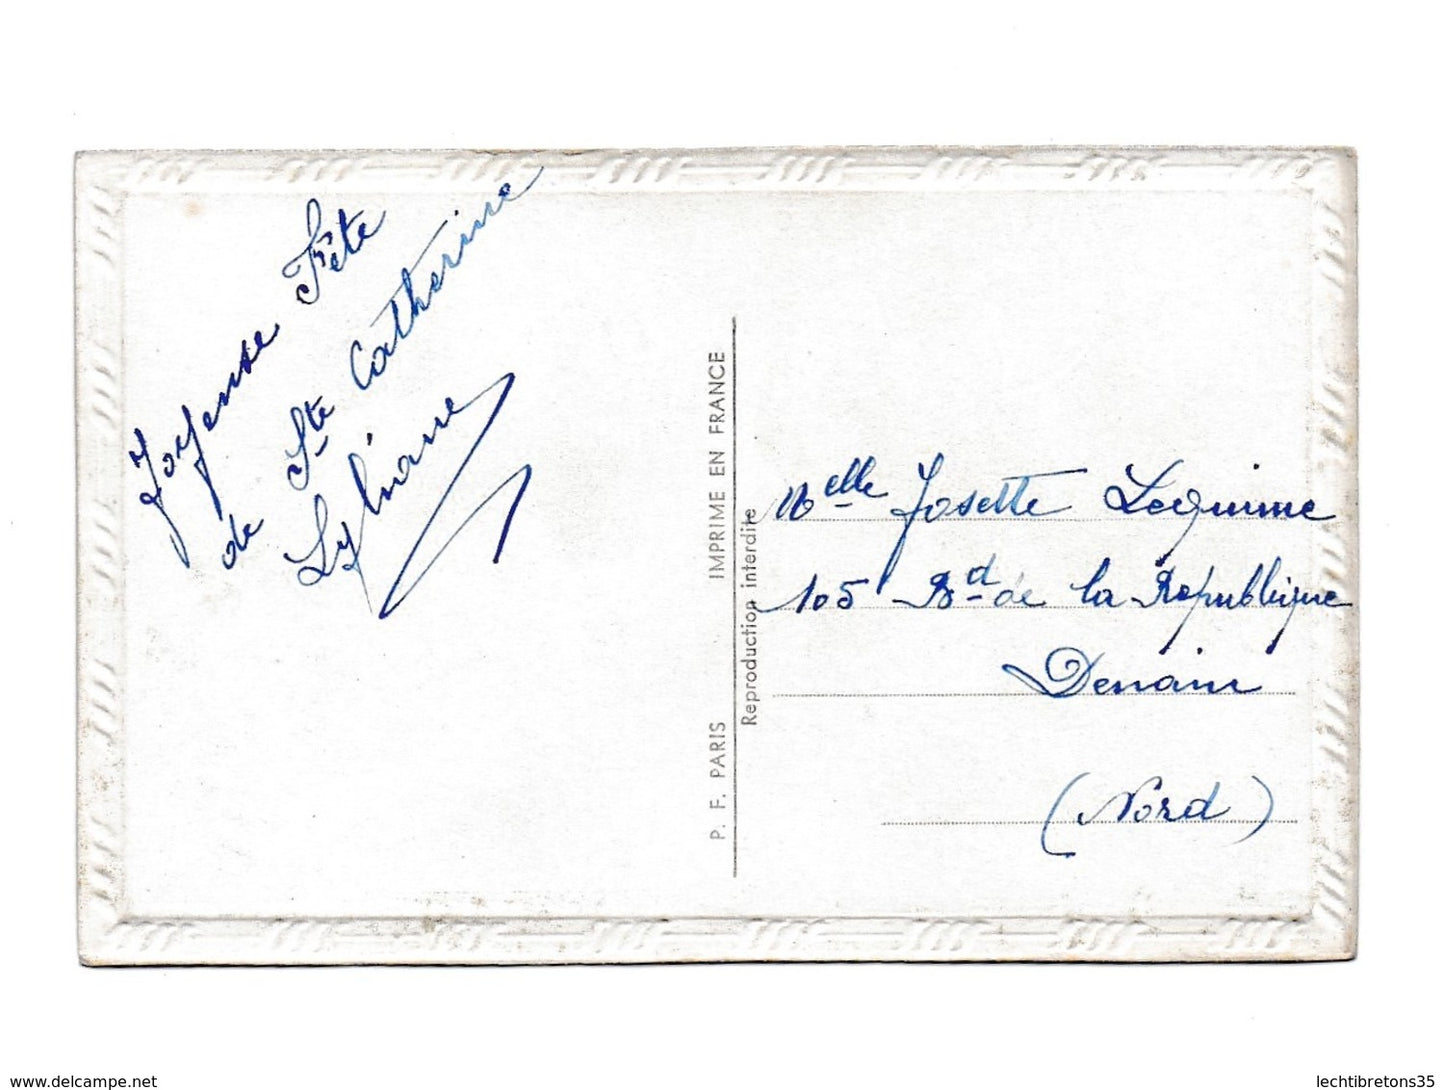 Joyeuse Fête
de Ste Catherine
Lyliane
P. F. PARIS IMPRIME EN FRANCE
Reproduction interdite
Melle Josette Lequime
105 Bd de la République
Denain
(Nord)
delcampe.net lechtibretons35